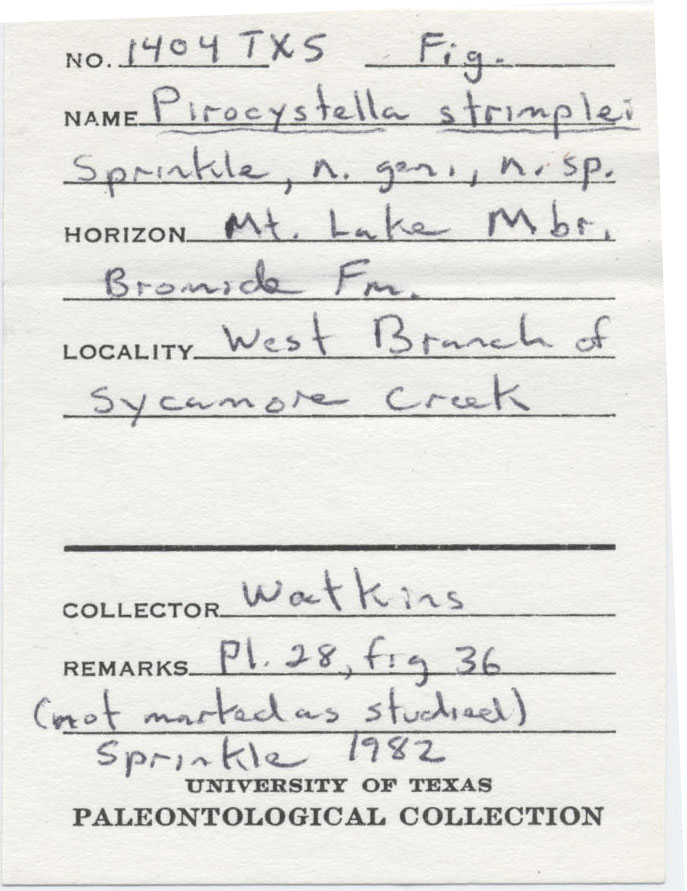 NO. 1404 TXS Fig.
NAME Pirocystella strimplei
Sprinkle, n. gen., n. sp.
HORIZON Mt. Lake Mbr.
Bromide Fm.
LOCALITY West Branch of
Sycamore Creek
COLLECTOR Watkins
REMARKS Pl. 28, fig 36
(not marked as studied)
Sprinkle 1982
UNIVERSITY OF TEXAS
PALEONTOLOGICAL COLLECTION